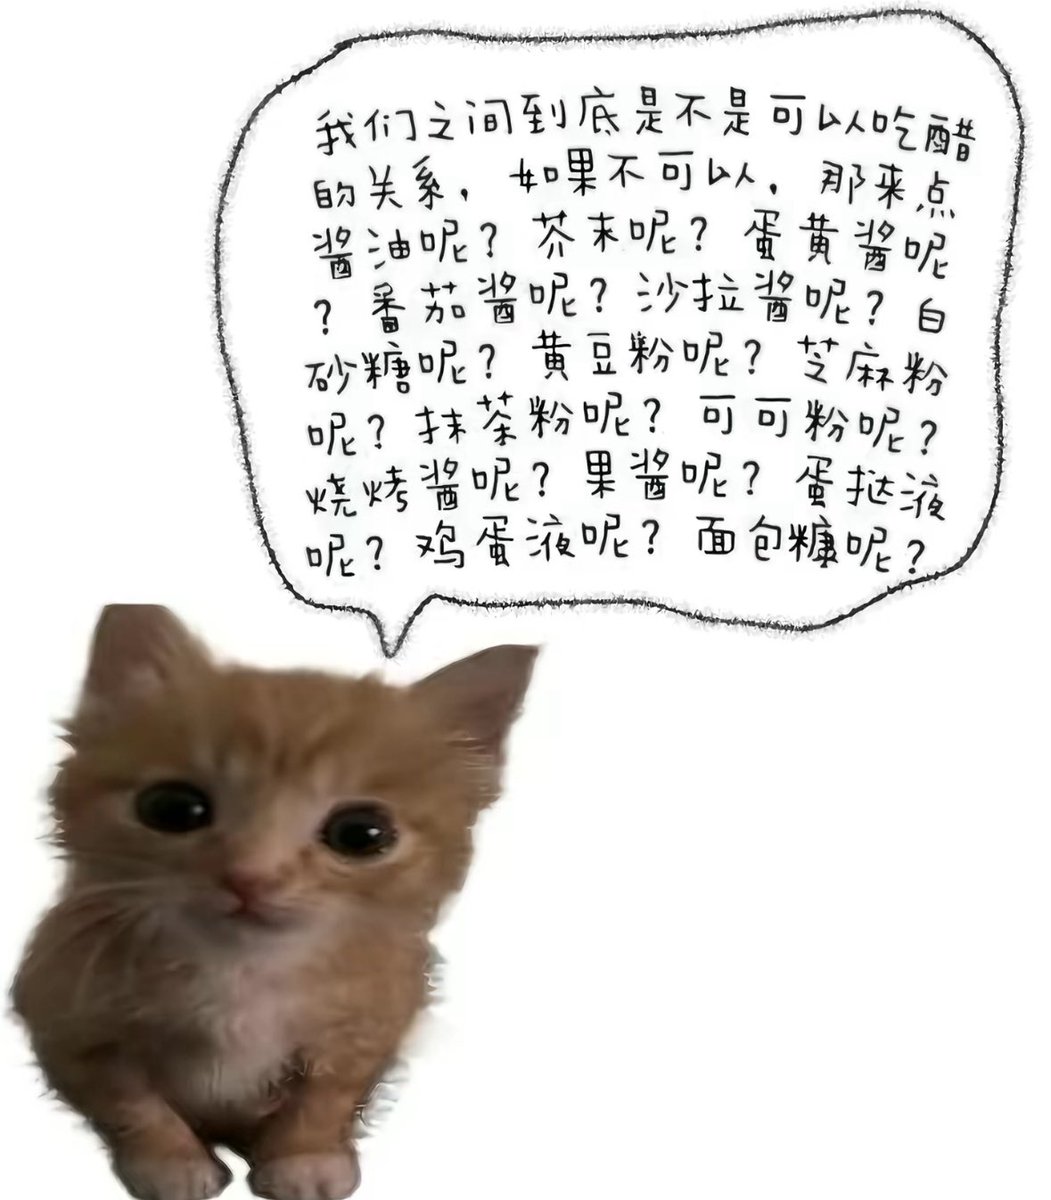 我们之间到底是不是可以吃醋
的关系，如果不可以，那来点
酱油呢？芥末呢？蛋黄酱呢
？番茄酱呢？沙拉酱呢？白
砂糖呢？黄豆粉呢？芝麻粉
呢？抹茶粉呢？可可粉呢？
烧烤酱呢？果酱呢？蛋挞液
呢？鸡蛋液呢？面包糠呢？